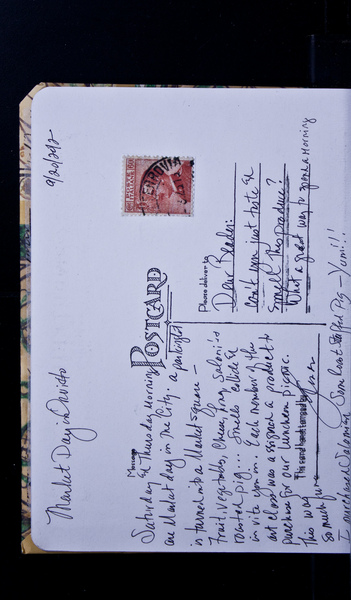 9/20/2012
Market Day in Orvieto
POSTCARD
Message
Please deliver to
Saturday & Thursday Morning
are Market day in The City. a parking lot
is turned into a Market square -
Fruit, vegetables, Cheese, Salami's
roasted pig... Smells collide &
invite you in. Each member of the
art class was assigned a product to
purchase for our luncheon picnic.
This was
so much fun
I purchased Salami & Some Roast Stuffed Pig - Yum!!!
Dear Reader:
Can't you just taste &
smell this produce?
What a great way to spend a Morning